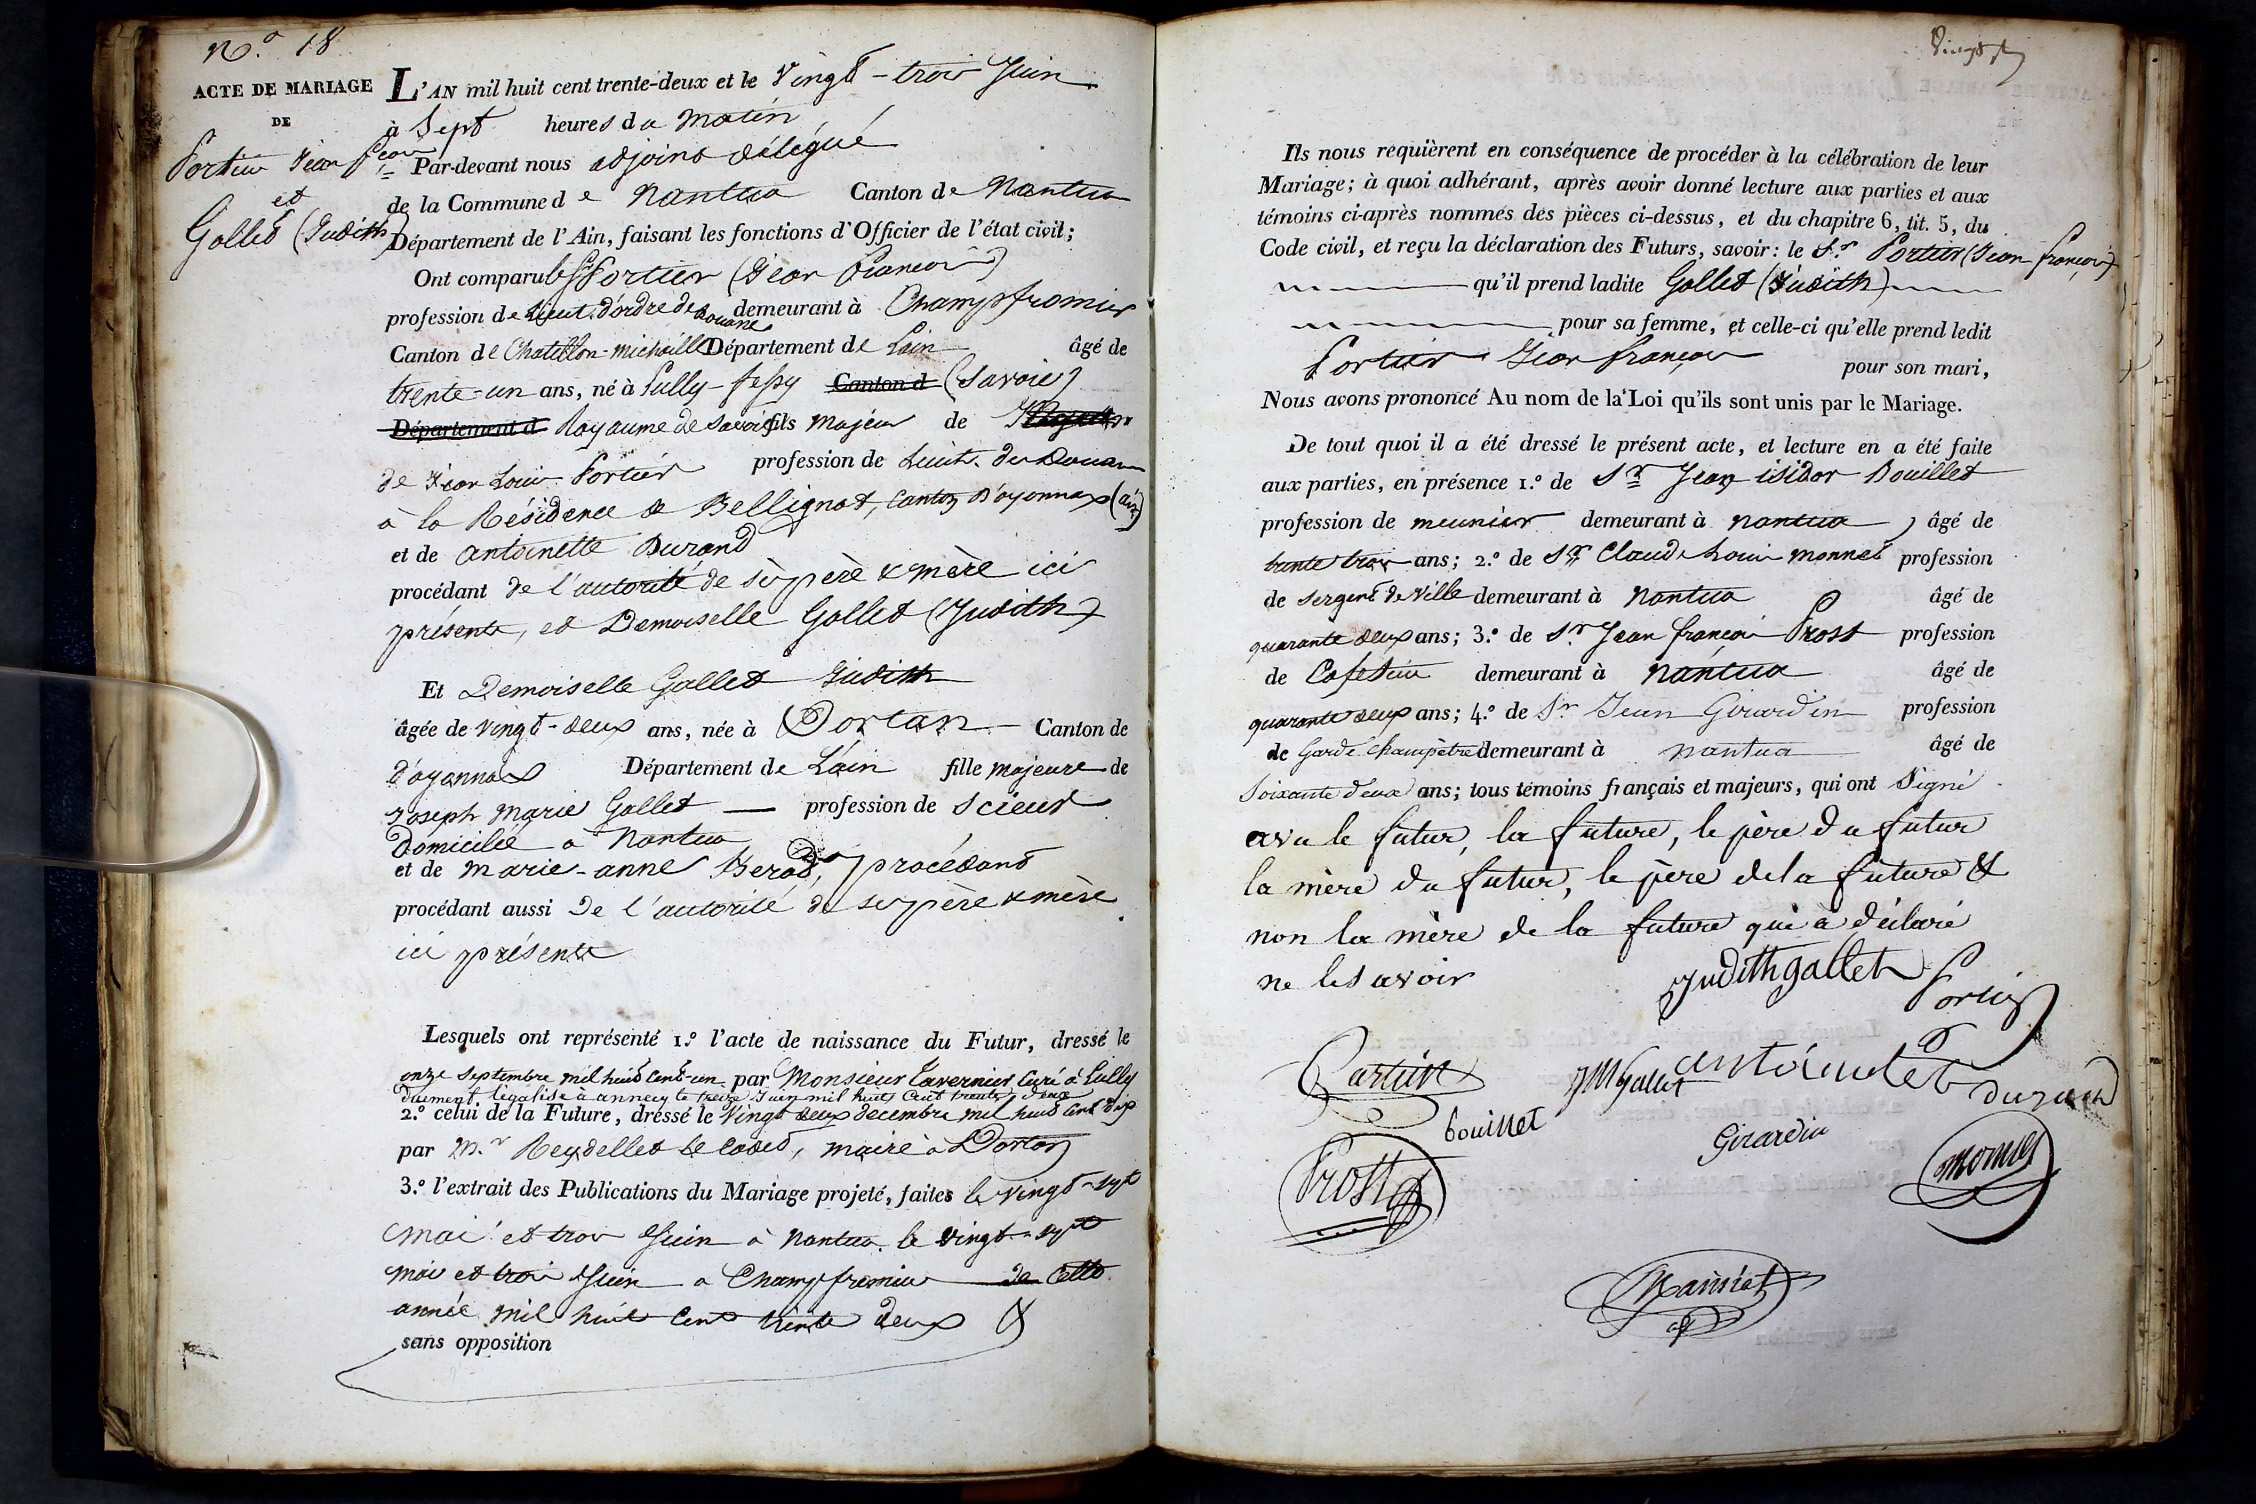 N.o 18
ACTE DE MARIAGE
DE
Portier Jean f.cois
et
Gallet (Judith)
L'AN mil huit cent trente-deux et le vingt-trois Juin
à Sept heures du matin
Par-devant nous adjoint délégué
de la Commune de Nantua Canton de Nantua
Département de l'Ain, faisant les fonctions d'Officier de l'état civil;
Ont comparu le Sr Portier (Jean François)
profession de Lieut. d'ordre de Douane demeurant à Champfromier
Canton de Chatillon-michaille Département de L'ain âgé de
trente-un ans, né à Lully-fessy Canton d (Savoie)
Département d Royaume de Savoie fils majeur de
de Jean Louis Portier profession de Lieut. des Douanes
à la Résidence de Bellignat, Canton d'oyonnax (ain)
et de antoinette Durand
procédant de l'autorité de ses père & mère ici
présents, et Demoiselle Gallet (Judith)
Et Demoiselle Gallet Judith
âgée de vingt-deux ans, née à Dortan Canton de
d'oyonnax Département de L'ain fille majeure de
Joseph marie Gallet — profession de Scieur
Domicilié à Nantua
et de marie-anne Berod, procédant
procédant aussi de l'autorité de ses père & mère
ici présents
Lesquels ont représenté 1.o l'acte de naissance du Futur, dressé le
onze Septembre mil huit cent-un par Monsieur Tavernier Curé à Lully
duement légalisé à annecy le treize Juin mil huit Cent trente deux
2.o celui de la Future, dressé le vingt deux décembre mil huit Cent dix
par M.r Reydellet le Cadet, maire à Dortan
3.o l'extrait des Publications du Mariage projeté, faites le vingt-sept
mai et trois Juin à Nantua. le vingt-sept
mai et trois Juin à Champfromier de cette
année mil huit cent trente deux &
sans opposition
Ils nous requièrent en conséquence de procéder à la célébration de leur
Mariage; à quoi adhérant, après avoir donné lecture aux parties et aux
témoins ci-après nommés des pièces ci-dessus, et du chapitre 6, tit. 5, du
Code civil, et reçu la déclaration des Futurs, savoir: le S.r Portier (Jean françois)
qu'il prend ladite Gallet (Judith)
pour sa femme, et celle-ci qu'elle prend ledit
Portier Jean françois pour son mari,
Nous avons prononcé Au nom de la Loi qu'ils sont unis par le Mariage.
De tout quoi il a été dressé le présent acte, et lecture en a été faite
aux parties, en présence 1.o de Sr Jean isidor Bouillet
profession de meunier demeurant à Nantua, âgé de
trente trois ans; 2.o de Sr Claude Louis monnet profession
de sergent de ville demeurant à Nantua âgé de
quarante deux ans; 3.o de Sr Jean françois Prost profession
de Cafetier demeurant à Nantua âgé de
quarante deux ans; 4.o de Sr Jean Girardin profession
de Garde champêtre demeurant à nantua âgé de
Soixante deux ans; tous témoins français et majeurs, qui ont Signé
avec le futur, la future, le père du futur
la mère du futur, le père de la future &
non la mère de la future qui a déclaré
ne le savoir
Judith gallet Portier
Portier JM gallet antoindet durand
bouillet
Girardin
Prost monnet